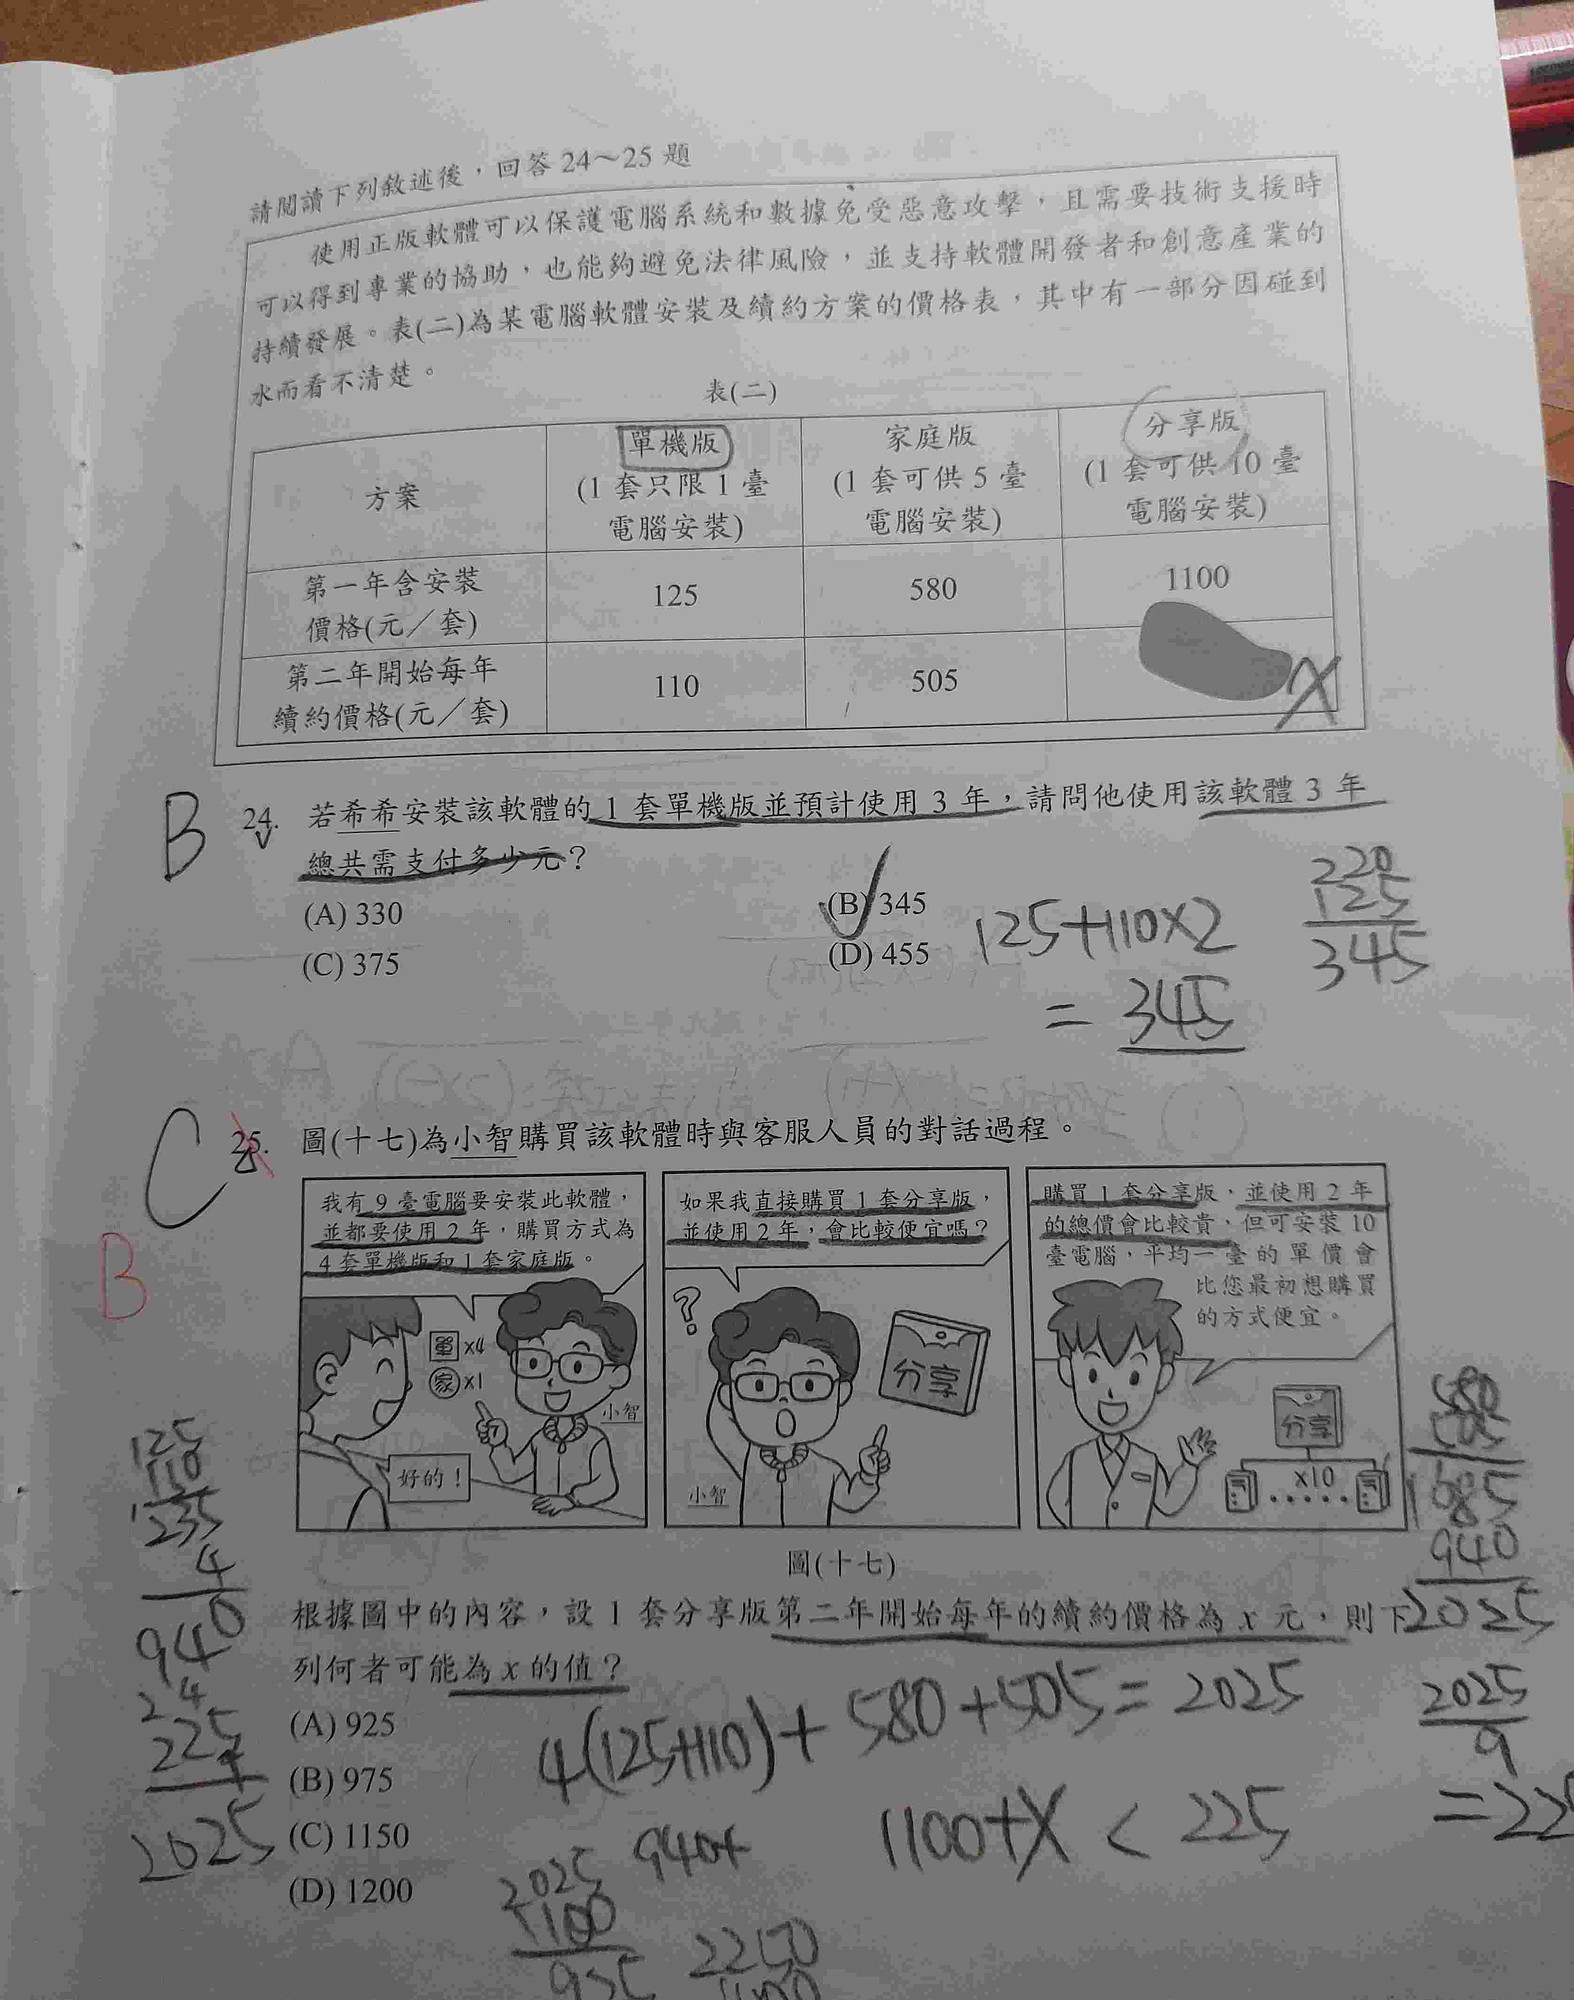 請閱讀下列敘述後，回答 24～25 題
使用正版軟體可以保護電腦系統和數據免受惡意攻擊，且需要技術支援時
可以得到專業的協助，也能夠避免法律風險，並支持軟體開發者和創意產業的
持續發展。表(二)為某電腦軟體安裝及續約方案的價格表，其中有一部分因碰到
水而看不清楚。
表(二)
方案
單機版
(1 套只限 1 臺
電腦安裝)
家庭版
(1 套可供 5 臺
電腦安裝)
分享版
(1 套可供 10 臺
電腦安裝)
第一年含安裝
價格(元／套)
125
580
1100
第二年開始每年
續約價格(元／套)
110
505
X
B
24. 若希希安裝該軟體的 1 套單機版並預計使用 3 年，請問他使用該軟體 3 年
總共需支付多少元？
(A) 330
(B) 345
(C) 375
(D) 455
125+110×2
= 345
220
125
345
C
25. 圖(十七)為小智購買該軟體時與客服人員的對話過程。
B
我有 9 臺電腦要安裝此軟體，
並都要使用 2 年，購買方式為
4 套單機版和 1 套家庭版。
單 ×4
家 ×1
小智
好的！
如果我直接購買 1 套分享版，
並使用 2 年，會比較便宜嗎？
?
分享
小智
購買 1 套分享版，並使用 2 年
的總價會比較貴，但可安裝 10
臺電腦，平均一臺的單價會
比您最初想購買
的方式便宜。
分享
×10
圖(十七)
125
110
235
4
940
580
505
1085
940
2025
根據圖中的內容，設 1 套分享版第二年開始每年的續約價格為 x 元，則下
列何者可能為 x 的值？
(A) 925
(B) 975
(C) 1150
(D) 1200
4(125+110)+580+505=2025
1100+X < 225
2025
9
2 4
225
2025
940+
2025
1100
925
2250
1100